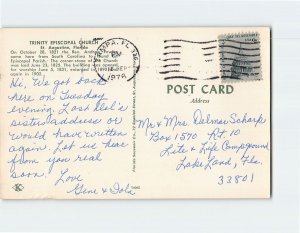 TRINITY EPISCOPAL CHURCH
St. Augustine, Florida
On October 28, 1821 the Rev. Andrew
came here from South Carolina to found
Episcopal Parish. The corner stone of the Church
was laid June 23, 1825. The building was opened
for worship June 5, 1831, enlarged in
again in 1902.
Hi, We got back
here on Tuesday
evening. Lost Dell's
sister address or
would have written
again. Let us hear
from you real
soon.
Love
Gene & Iola
TAMPA, FL
PM
1978
POST CARD
Address
Mr & Mrs Delmar Scharp
Box 1570 Rt 10
Lite & Life Campground
Lake Land, Fla.
33801